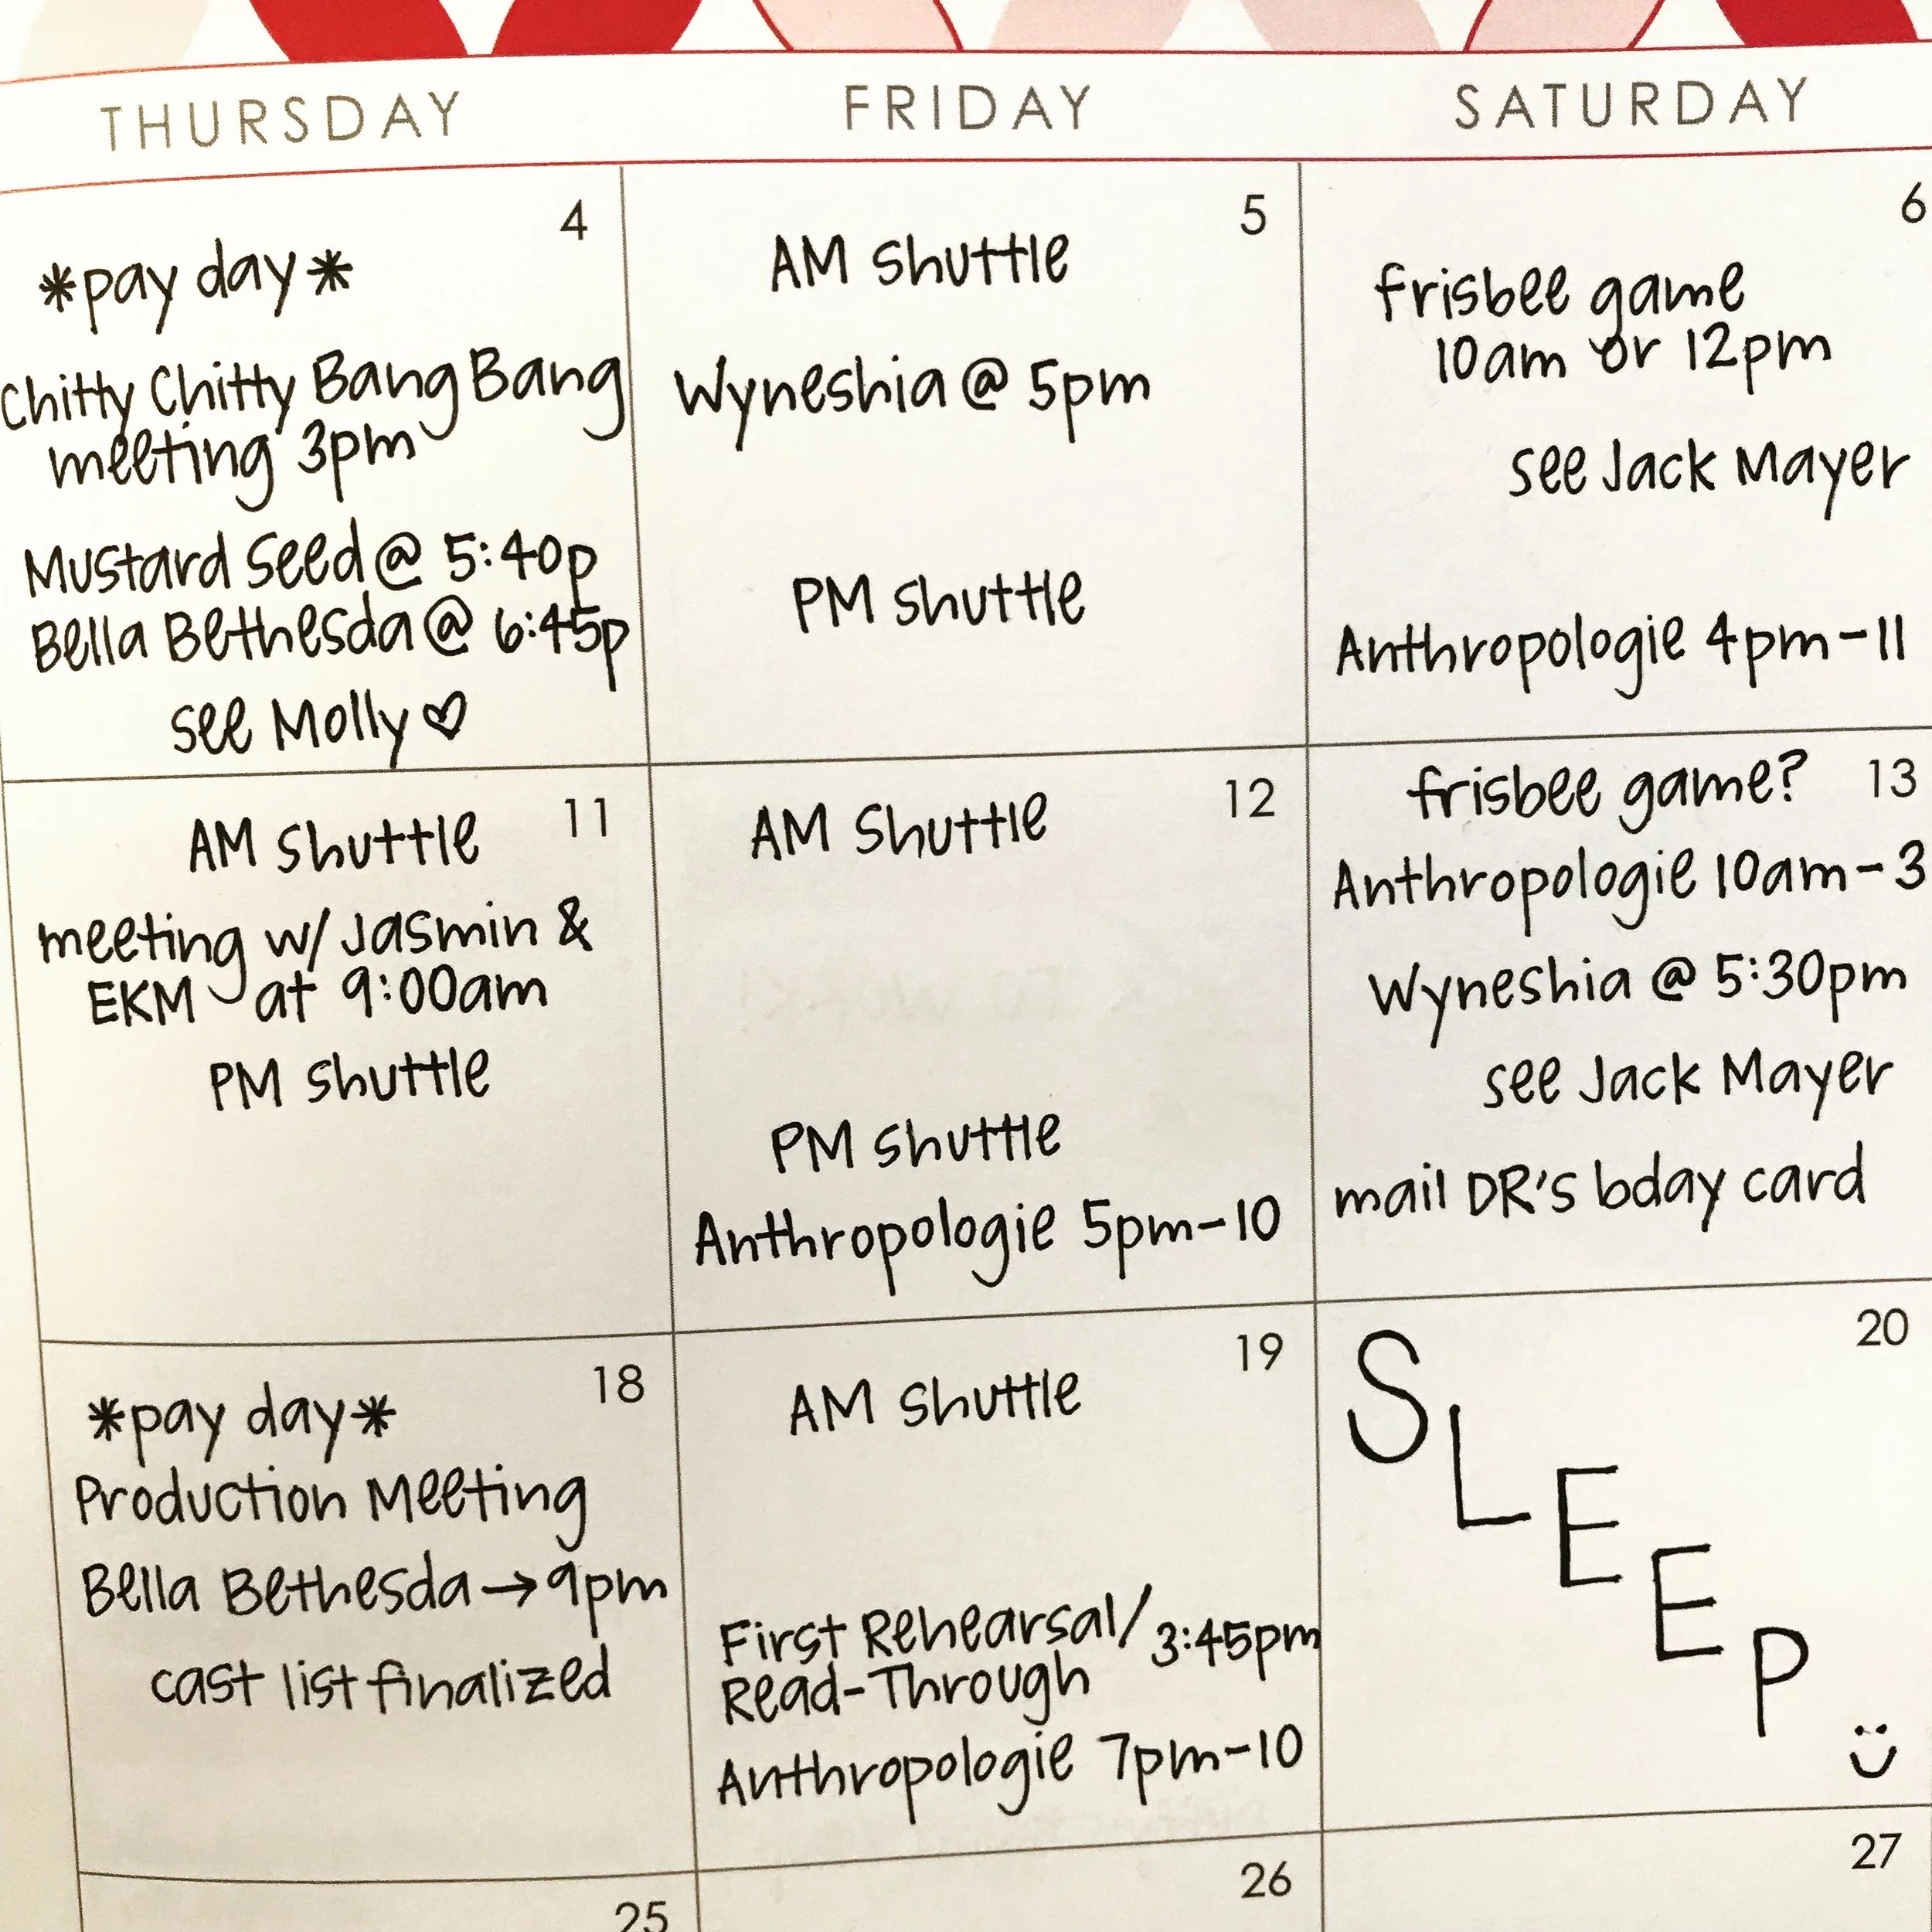 THURSDAY FRIDAY SATURDAY
4
*pay day*
Chitty Chitty Bang Bang
meeting 3pm
Mustard Seed @ 5:40p
Bella Bethesda @ 6:45p
see Molly ♡
5
AM shuttle
Wyneshia @ 5pm
PM shuttle
6
frisbee game
10am or 12pm
see Jack Mayer
Anthropologie 4pm-11
11
AM shuttle
meeting w/ Jasmin &
EKM at 9:00am
PM shuttle
12
AM shuttle
PM shuttle
Anthropologie 5pm-10
13
frisbee game?
Anthropologie 10am-3
Wyneshia @ 5:30pm
see Jack Mayer
mail DR's bday card
18
*pay day*
Production Meeting
Bella Bethesda → 9pm
cast list finalized
19
AM shuttle
First Rehearsal/ 3:45pm
Read-Through
Anthropologie 7pm-10
20
SLEEP
25
26
27